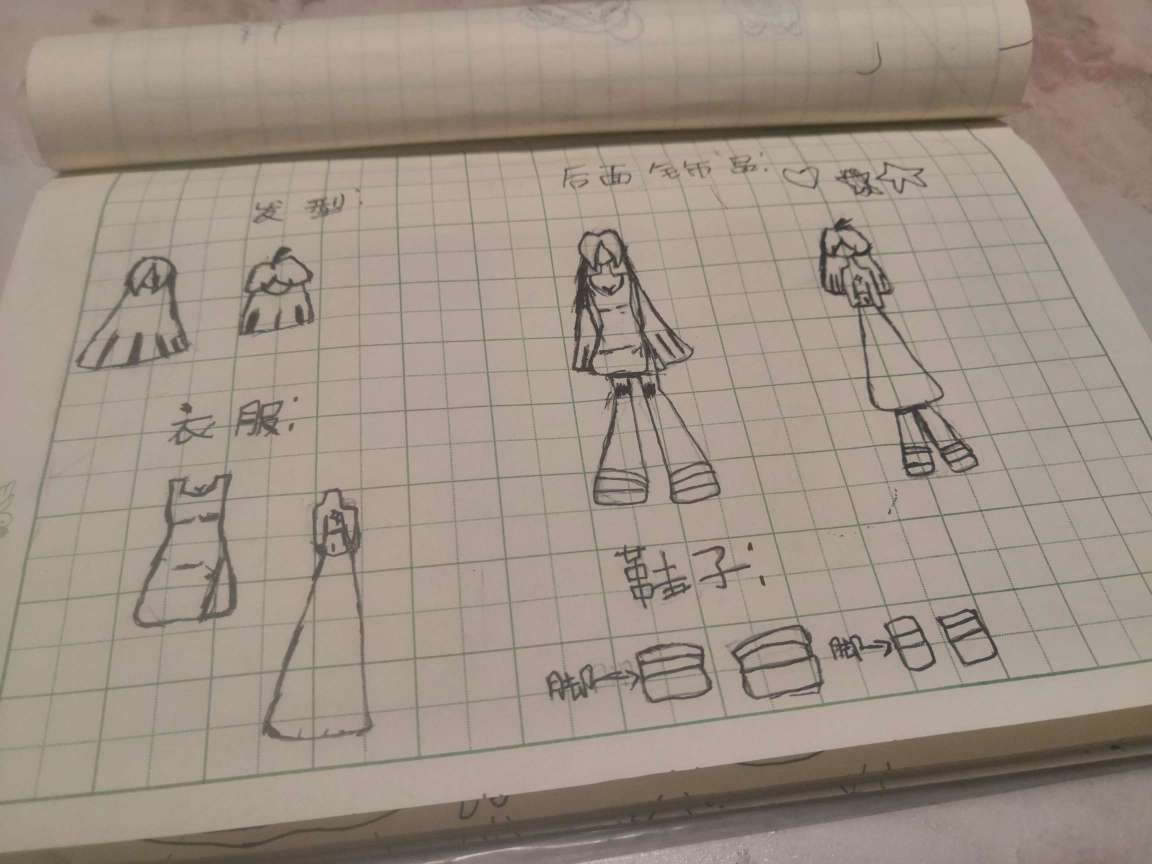 发型:
后面 饰品:
衣服:
鞋子:
脚→
脚→